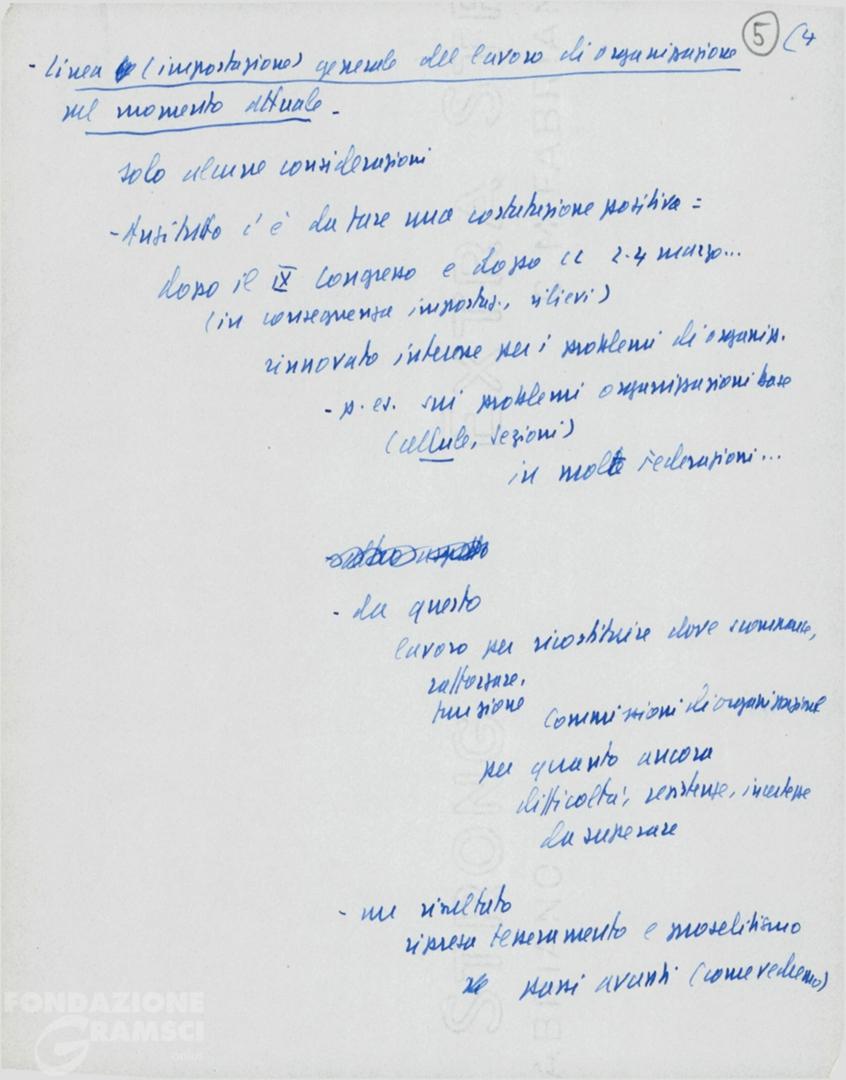 5 (4
- Linea (impostazione) generale del lavoro di organizzazione
nel momento attuale -
solo alcune considerazioni
- Anzitutto c'è da fare una constatazione positiva =
dopo il IX Congresso e dopo CC 2-4 marzo...
(in conseguenza impostaz., rilievi)
rinnovato interesse per i problemi di organizz.
- p. es. sui problemi organizzazioni base
(cellule, sezioni)
in molte federazioni...
- da questo
lavoro per ricostituire dove scomparse,
rafforzare,
funzione
Commissioni di organizzazione
per quanto ancora
difficoltà, resistenze, incertezze
da superare
- un risultato
ripresa tesseramento e proselitismo
passi avanti (come vedremo)
FONDAZIONE
GRAMSCI
onlus